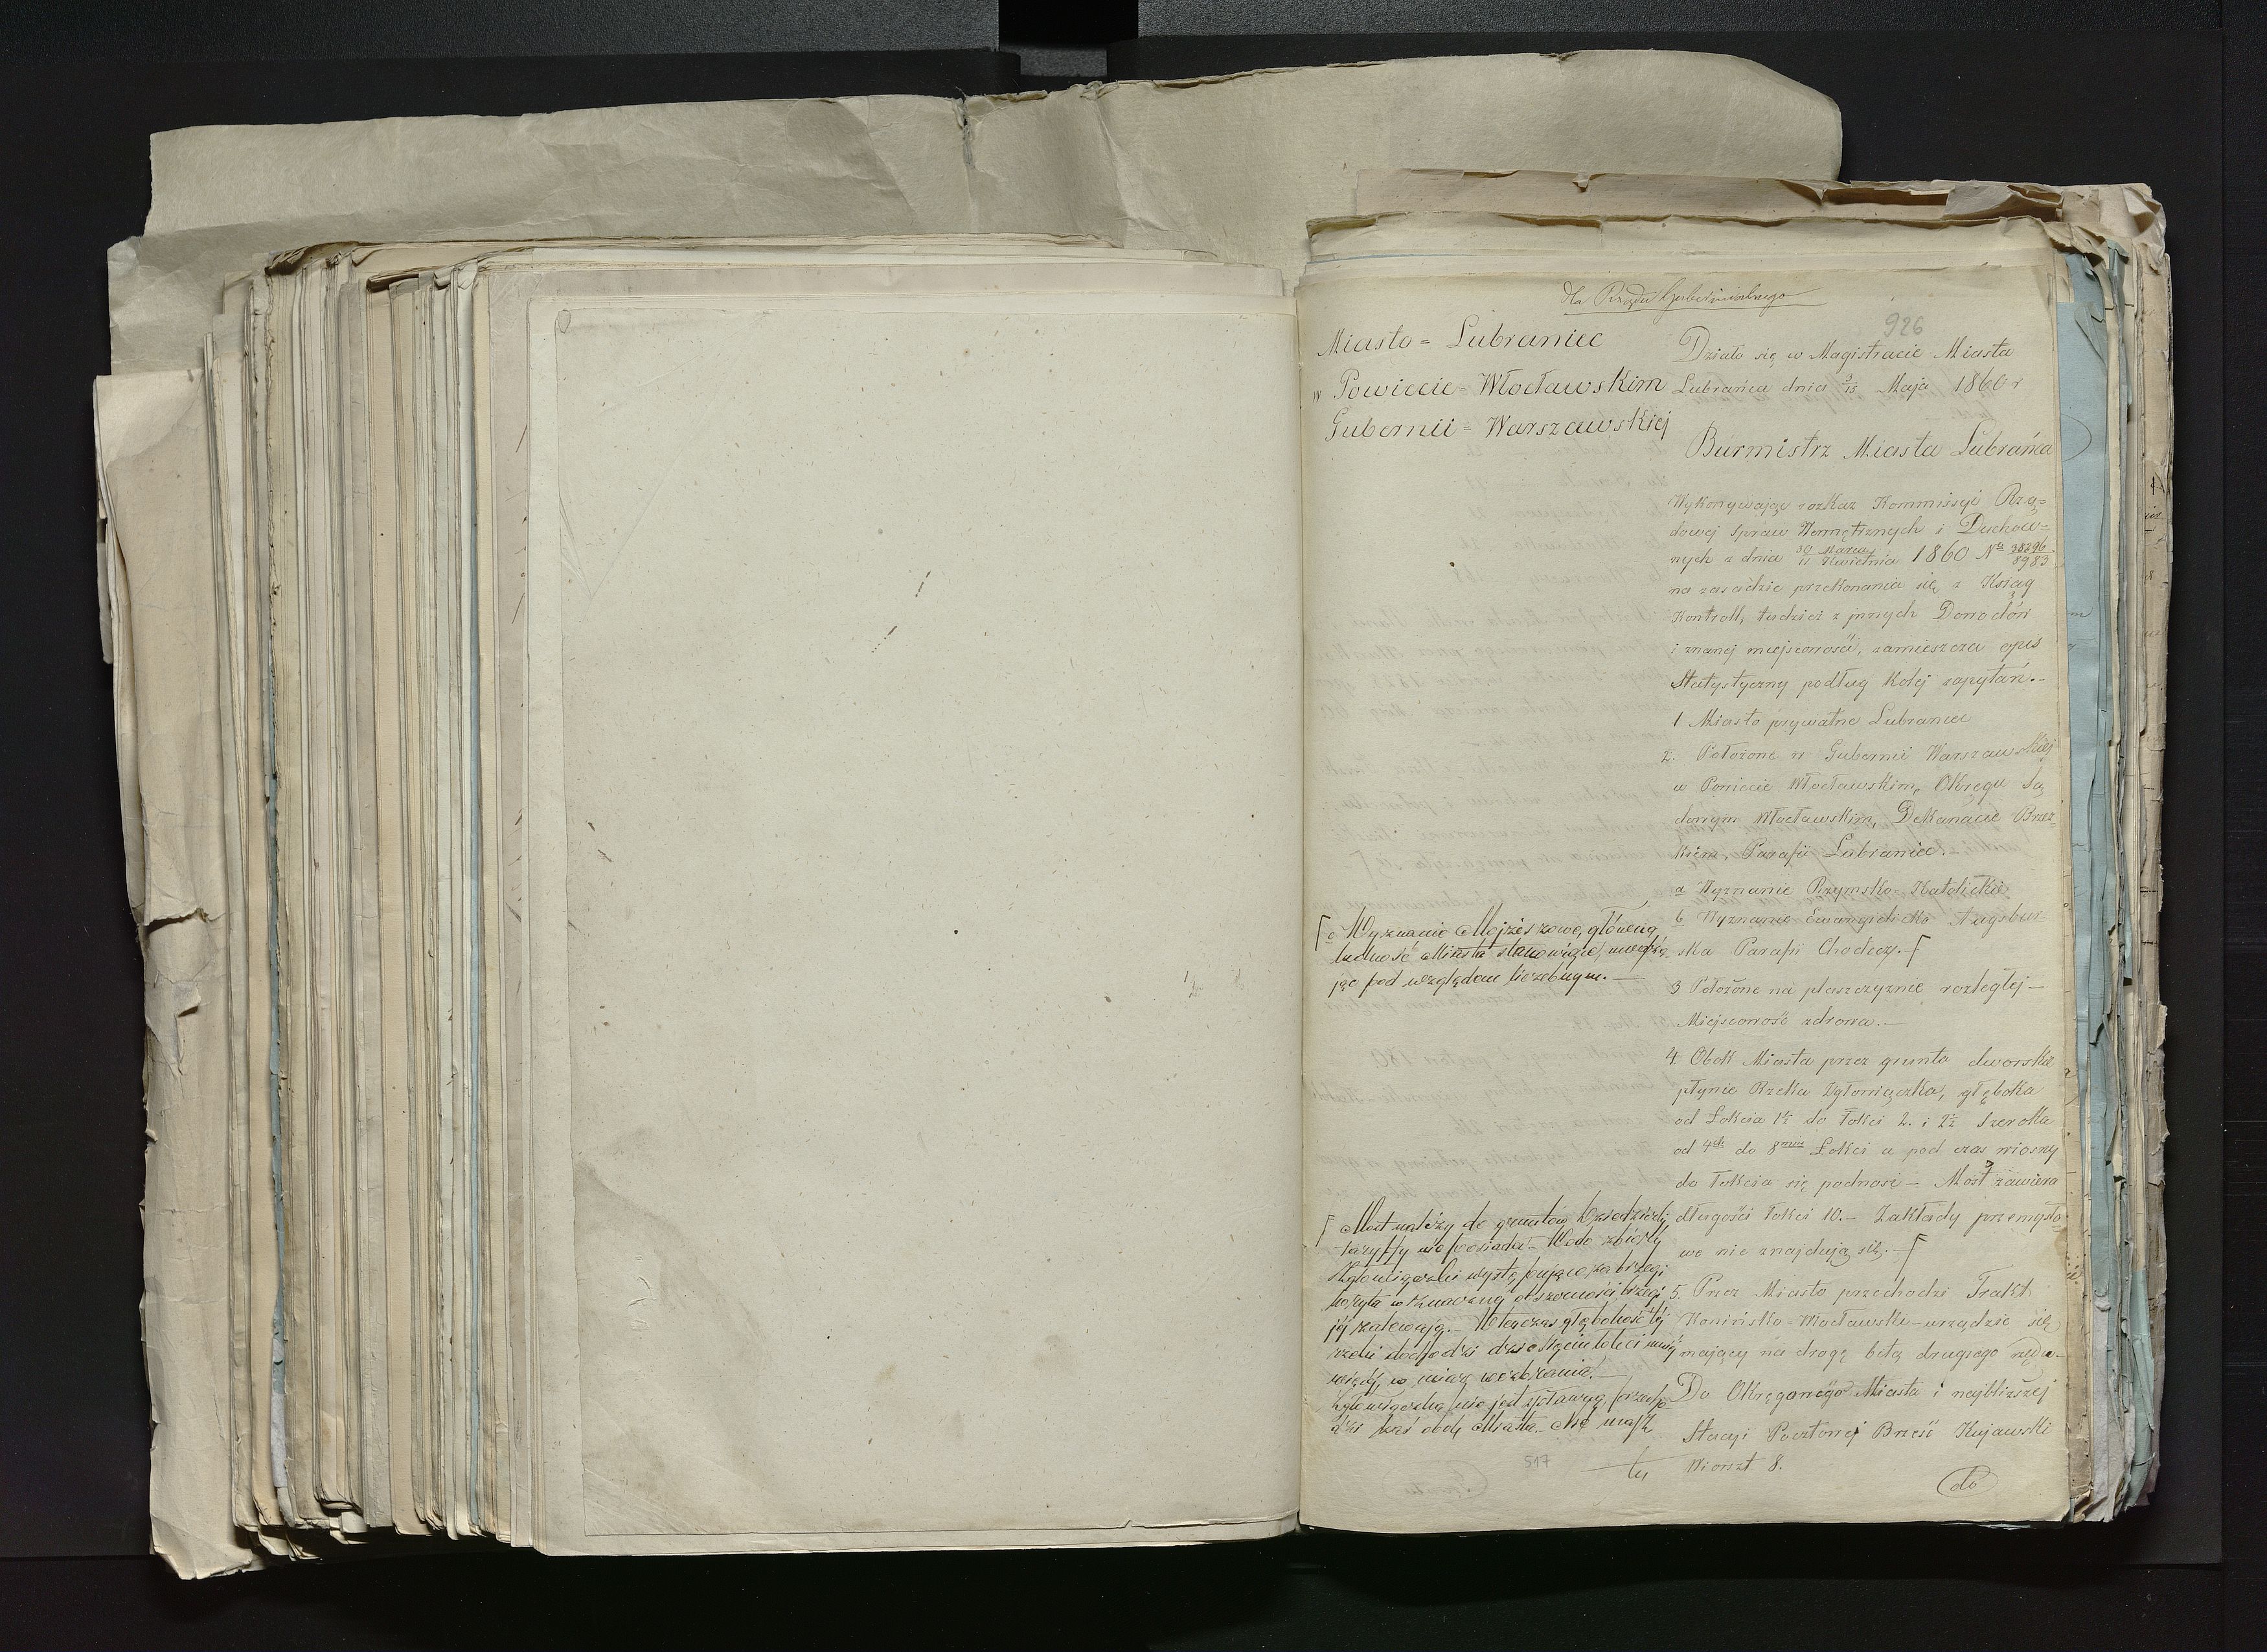 dla Rządu Gubernialnego
926
Miasto = Lubraniec
w Powiecie = Włocławskim
Gubernii = Warszawskiej
Działo się w Magistracie Miasta
Lubrańca dnia 3/15 Maja 1860 r
Burmistrz Miasta Lubrańca
Wykonywając rozkaz Kommissyi Rzą=
dowej Spraw Wewnętrznych i Duchow=
nych z dnia 30 Marca/11 Kwietnia 1860 No 38296/8983
na zasadzie przekonania się z Ksiąg
Kontroll, tudzież z jnnych Dowodów
i znanej miejscowości, zamieszcza opis
Statystyczny podług kolej zapytań.-
1 Miasto prywatne Lubraniec
2. Położone w Gubernii Warszawskiej
w Powiecie Włocławskim, Okręgu Są
dowym Włocławskim, Dekanacie Brzez
kiem, Parafii Lubraniec.-
a Wyznanie Rzymsko-Katolickie
b Wyznanie Ewangielicko Augsbur-
ska Parafii Chodecz.-
c Wyznanie Mojżeszowe, główną
ludność Miasta stanowiące,
jąc pod względem liczebnym.-
3 Położone na płaszczyznie rozległej-
Miejscowość zdrowa.-
4 Obok Miasta przez grunta dworskie
płynie Rzeka Zgłowiączka, głęboka
od Łokcia 1½ do Łokci 2. i 2½ Szeroka
od 4ch do 8miu Łokci a pod czas wiosny
do Łokcia się podnosi - Most zawiera
długości Łokci 10.- Zakłady przemysło
we nie znajdują się.-
Most należy do gruntów
taryffy nie posiada. Woda
Zgłowiączki występująca za brzegi
koryta w znacznej obszerności brzegi
jej zalewają.- Wtenczas głębokość tej
rzeki dochodzi
w miarę wezbrania.-
Zgłowiączka nie jest spławną,
obok Miasta. Nie masz
5. Przez Miasto przechodzi Trakt
Konińsko-Włocławski-urządzić się
mający na drogę bitą drugiego rzędu-
Do Okręgowego Miasta i najbliższej
Stacyi Pocztowej Brześć Kujawski
Wiorszt 8.
517
tu
do